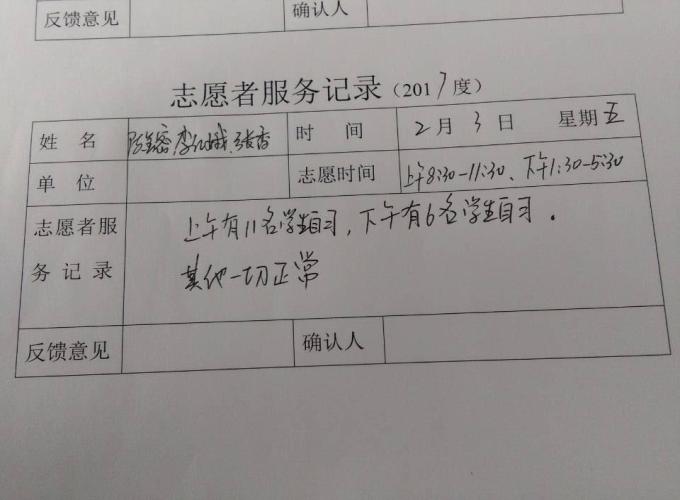 反馈意见 确认人
志愿者服务记录（2017度）
姓 名 李仙娥 张香 时 间 2月3日 星期五
单 位 志愿时间 上午8:30-11:30、下午1:30-5:30
志愿者服 上午有11名学生自习，下午有6名学生自习。
务记录 其他一切正常
反馈意见 确认人